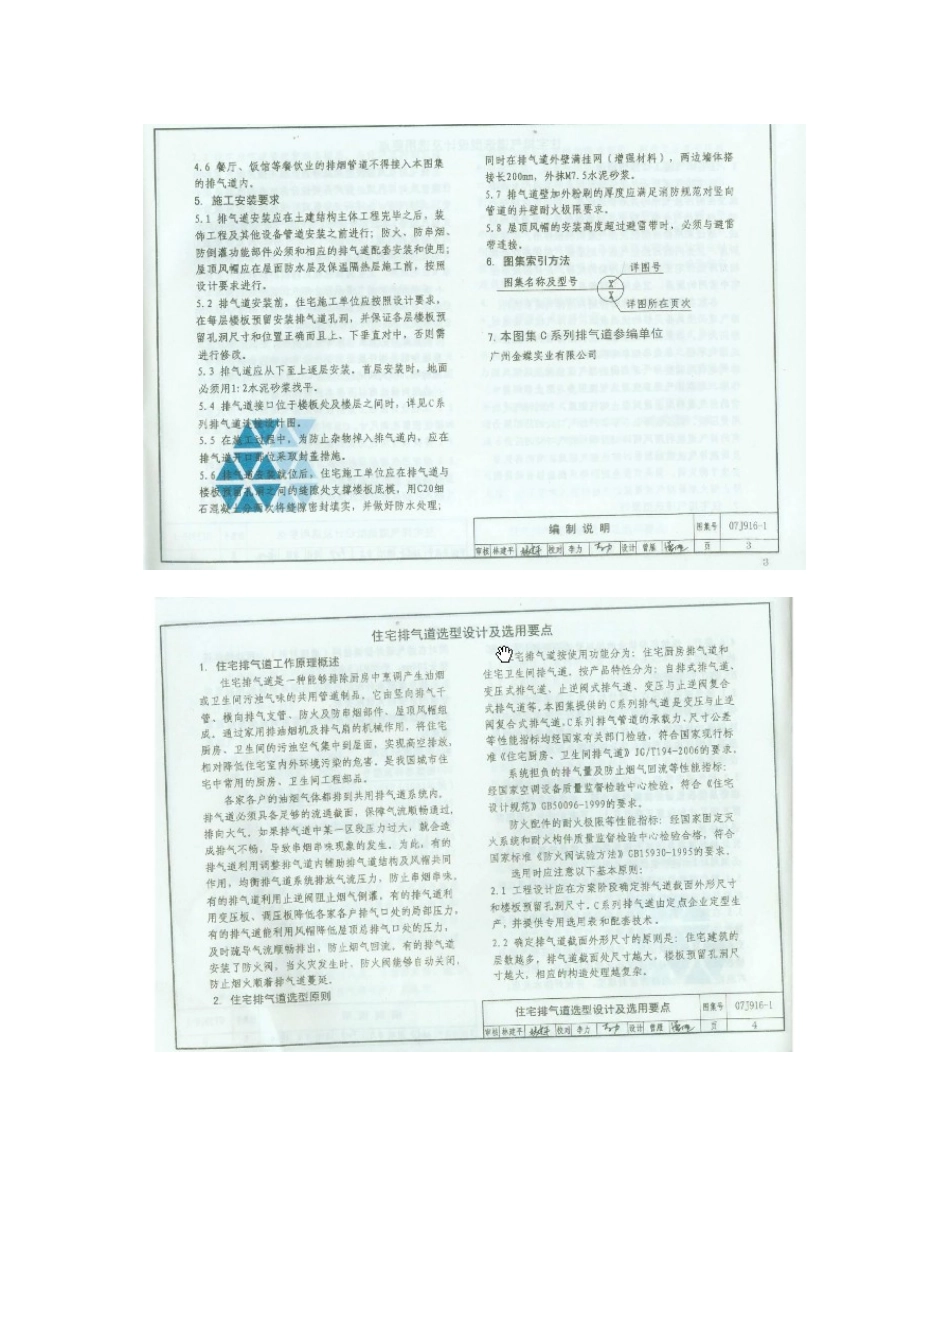 4.6 餐厅、饭馆等餐饮业的排烟管道不得接入本图集
的排气道内。
5. 施工安装要求
5.1 排气道安装应在土建结构主体工程完毕之后，装
饰工程及其他设备管道安装之前进行；防火、防串烟、
防倒灌功能部件必须和相应的排气道配套安装和使用；
屋顶风帽应在屋面防水层及保温隔热层施工前，按照
设计要求进行。
5.2 排气道安装前，住宅施工单位应按照设计要求，
在每层楼板预留安装排气道孔洞，并保证各层楼板预
留孔洞尺寸和位置正确而且上、下垂直对中，否则需
进行修改。
5.3 排气道应从下至上逐层安装。首层安装时，地面
必须用1:2水泥砂浆找平。
5.4 排气道接口位于楼板处及楼层之间时，详见C系
列排气道连接设计图。
5.5 在施工过程中，为防止杂物掉入排气道内，应在
排气道开口部位采取封盖措施。
5.6 排气道安装就位后，住宅施工单位应在排气道与
楼板预留孔洞之间的缝隙处支撑楼板底模，用C20细
石混凝土分两次将缝隙密封填实，并做好防水处理；
同时在排气道外壁满挂网（增强材料），两边墙体搭
接长200mm，外抹M7.5水泥砂浆。
5.7 排气道壁加外粉刷的厚度应满足消防规范对竖向
管道的井壁耐火极限要求。
5.8 屋顶风帽的安装高度超过避雷带时，必须与避雷
带连接。
6. 图集索引方法
详图号
图集名称及型号
X
X
详图所在页次
7. 本图集C系列排气道参编单位
广州金蝶实业有限公司
编制说明 图集号 07J916-1
审核 林建平 校对 李力 设计 曾雁 页 3
3
住宅排气道选型设计及选用要点
1. 住宅排气道工作原理概述
住宅排气道是一种能够排除厨房中烹调产生油烟
或卫生间污浊气味的共用管道制品。它由竖向排气干
管、横向排气支管、防火及防串烟部件、屋顶风帽组
成。通过家用排油烟机及排气扇的机械作用，将住宅
厨房、卫生间的污浊空气集中到屋面，实现高空排放，
相对降低住宅室内外环境污染的危害。是我国城市住
宅中常用的厨房、卫生间工程部品。
各家各户的油烟气体都排到共用排气道系统内。
排气道必须具备足够的流通截面，保障气流顺畅通过，
排向大气。如果排气道中某一区段压力过大，就会造
成排气不畅，导致串烟串味现象的发生。为此，有的
排气道利用调整排气道内辅助排气道结构及风帽共同
作用，均衡排气道系统排放气流压力，防止串烟串味。
有的排气道利用止逆阀阻止烟气倒灌，有的排气道利
用变压板、调压板降低各家各户排气口处的局部压力，
有的排气道能利用风帽降低屋顶总排气口处的压力，
及时疏导气流顺畅排出，防止烟气回流。有的排气道
安装了防火阀，当火灾发生时，防火阀能够自动关闭，
防止烟火顺着排气道蔓延。
2. 住宅排气道选型原则
宅排气道按使用功能分为：住宅厨房排气道和
住宅卫生间排气道。按产品特性分为：自排式排气道、
变压式排气道、止逆阀式排气道、变压与止逆阀复合
式排气道等，本图集提供的C系列排气道是变压与止逆
阀复合式排气道。C系列排气管道的承载力、尺寸公差
等性能指标均经国家有关部门检验，符合国家现行标
准《住宅厨房、卫生间排气道》JG/T194-2006的要求。
系统担负的排气量及防止烟气回流等性能指标：
经国家空调设备质量监督检验中心检验，符合《住宅
设计规范》GB50096-1999的要求。
防火配件的耐火极限等性能指标：经国家固定灭
火系统和耐火构件质量监督检验中心检验合格，符合
国家标准《防火阀试验方法》GB15930-1995的要求。
选用时应注意以下基本原则：
2.1 工程设计应在方案阶段确定排气道截面外形尺寸
和楼板预留孔洞尺寸。C系列排气道由定点企业定型生
产，并提供专用选用表和配套技术。
2.2 确定排气道截面外形尺寸的原则是：住宅建筑的
层数越多，排气道截面处尺寸越大，楼板预留孔洞尺
寸越大，相应的构造处理越复杂。
住宅排气道选型设计及选用要点 图集号 07J916-1
审核 林建平 校对 李力 设计 曾雁 页 4